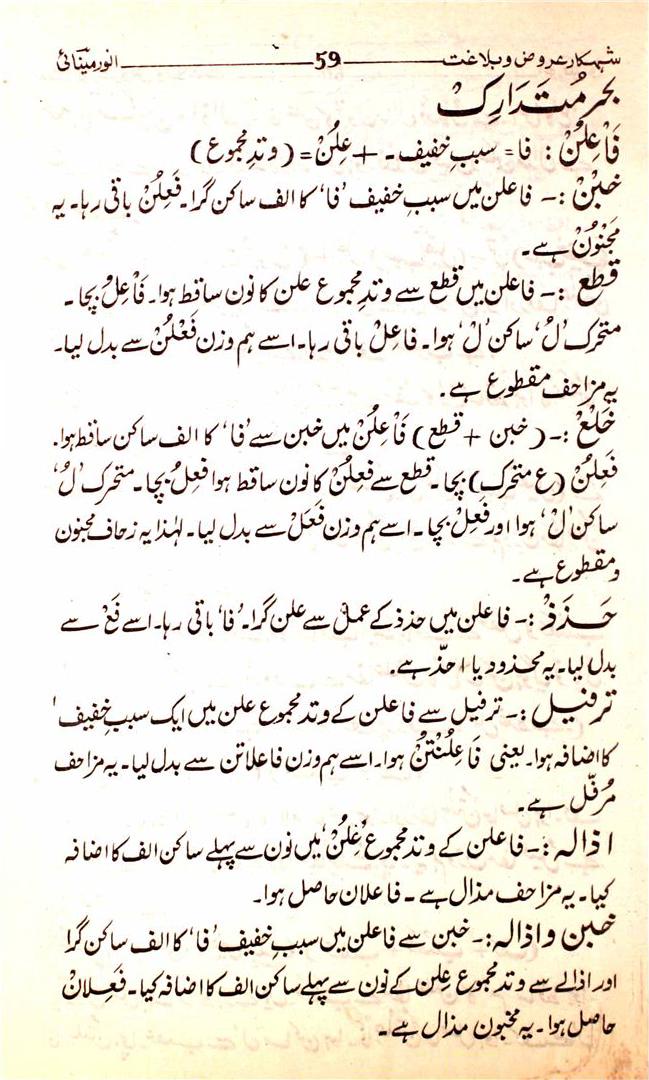 شہکار عروض و بلاغت ———— 59 ———— انور مینائی
بحر مُتَدَارِک
فَاْعِلُنْ : فا = سببِ خفیف۔ + عِلُنْ = (وتدِ مجموع)
خبْنْ :۔ فاعلن میں سببِ خفیف 'فا' کا الف ساکن گرا۔ فَعِلُنْ باقی رہا۔ یہ
مجنوُنْ ہے۔
قطع :۔ فاعلن میں قطع سے وتدِ مجموع علن کا نون ساقط ہوا۔ فَاْعِلُ بچا۔
متحرک 'لُ' ساکن 'لْ' ہوا۔ فاعِلْ باقی رہا۔ اسے ہم وزن فَعْلُنْ سے بدل لیا۔
یہ مزاحف مقطوع ہے۔
خَلْعْ :۔ (خبن + قطع) فَاْعِلُنْ میں خبن سے 'فا' کا الف ساکن ساقط ہوا۔
فَعِلُنْ (ع متحرک) بچا۔ قطع سے فَعِلُنْ کا نون ساقط ہوا فَعِلُ بچا۔ متحرک 'لُ'
ساکن 'لْ' ہوا اور فَعِلْ بچا۔ اسے ہم وزن فَعَلْ سے بدل لیا۔ لہٰذا یہ زحاف مجنون
و مقطوع ہے۔
حَذَذْ :۔ فاعلن میں حذذ کے عمل سے علن گرا۔ 'فا' باقی رہا۔ اسے فَعْ سے
بدل لیا۔ یہ محذود یا احذّ ہے۔
ترفیل :۔ ترفیل سے فاعلن کے وتد مجموع علن میں ایک سببِ خفیف'
کا اضافہ ہوا۔ یعنی فَاعِلُنْتُنْ ہوا۔ اسے ہم وزن فاعلاتن سے بدل لیا۔ یہ مزاحف
مُرفّل ہے۔
اذالہ :۔ فاعلن کے وتد مجموع 'عِلُنْ' میں نون سے پہلے ساکن الف کا اضافہ
کیا۔ یہ مزاحف مذال ہے۔ فاعلان حاصل ہوا۔
خبن و اذالہ :۔ خبن سے فاعلن میں سببِ خفیف 'فا' کا الف ساکن گرا
اور اذالے سے وتد مجموع عِلن کے نون سے پہلے ساکن الف کا اضافہ کیا۔ فَعِلانْ
حاصل ہوا۔ یہ مخبون مذال ہے۔